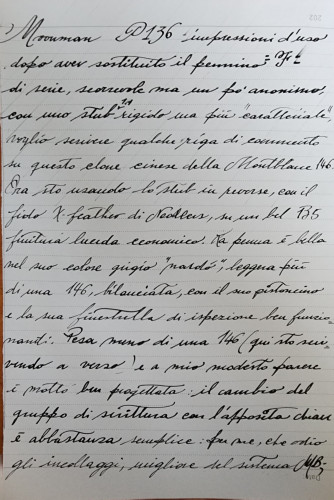 Moonman P136 impressioni d'uso
dopo aver sostituito il pennino "F"
di serie, scorrevole ma un po' anonimo,
con uno stub 1.1 rigido ma più "caratteriale",
voglio scrivere qualche riga di commento
su questo clone cinese della Montblanc 146.
Ora sto usando lo stub in reverse, con il
fido X-feather di Noodlers, su un bel B5
finitura lucida economico. La penna è bella
nel suo colore grigio "nardò", leggera più
di una 146, bilanciata, con il suo pistoncino
e la sua finestrella di ispezione ben funzio
nanti. Pesa meno di una 146 (qui sto scri-
vendo a verso) e a mio modesto parere
è molto ben progettata: il cambio del
gruppo di scrittura con l'apposita chiave
è abbastanza semplice: per me, che odio
gli incollaggi, migliore del sistema MB-